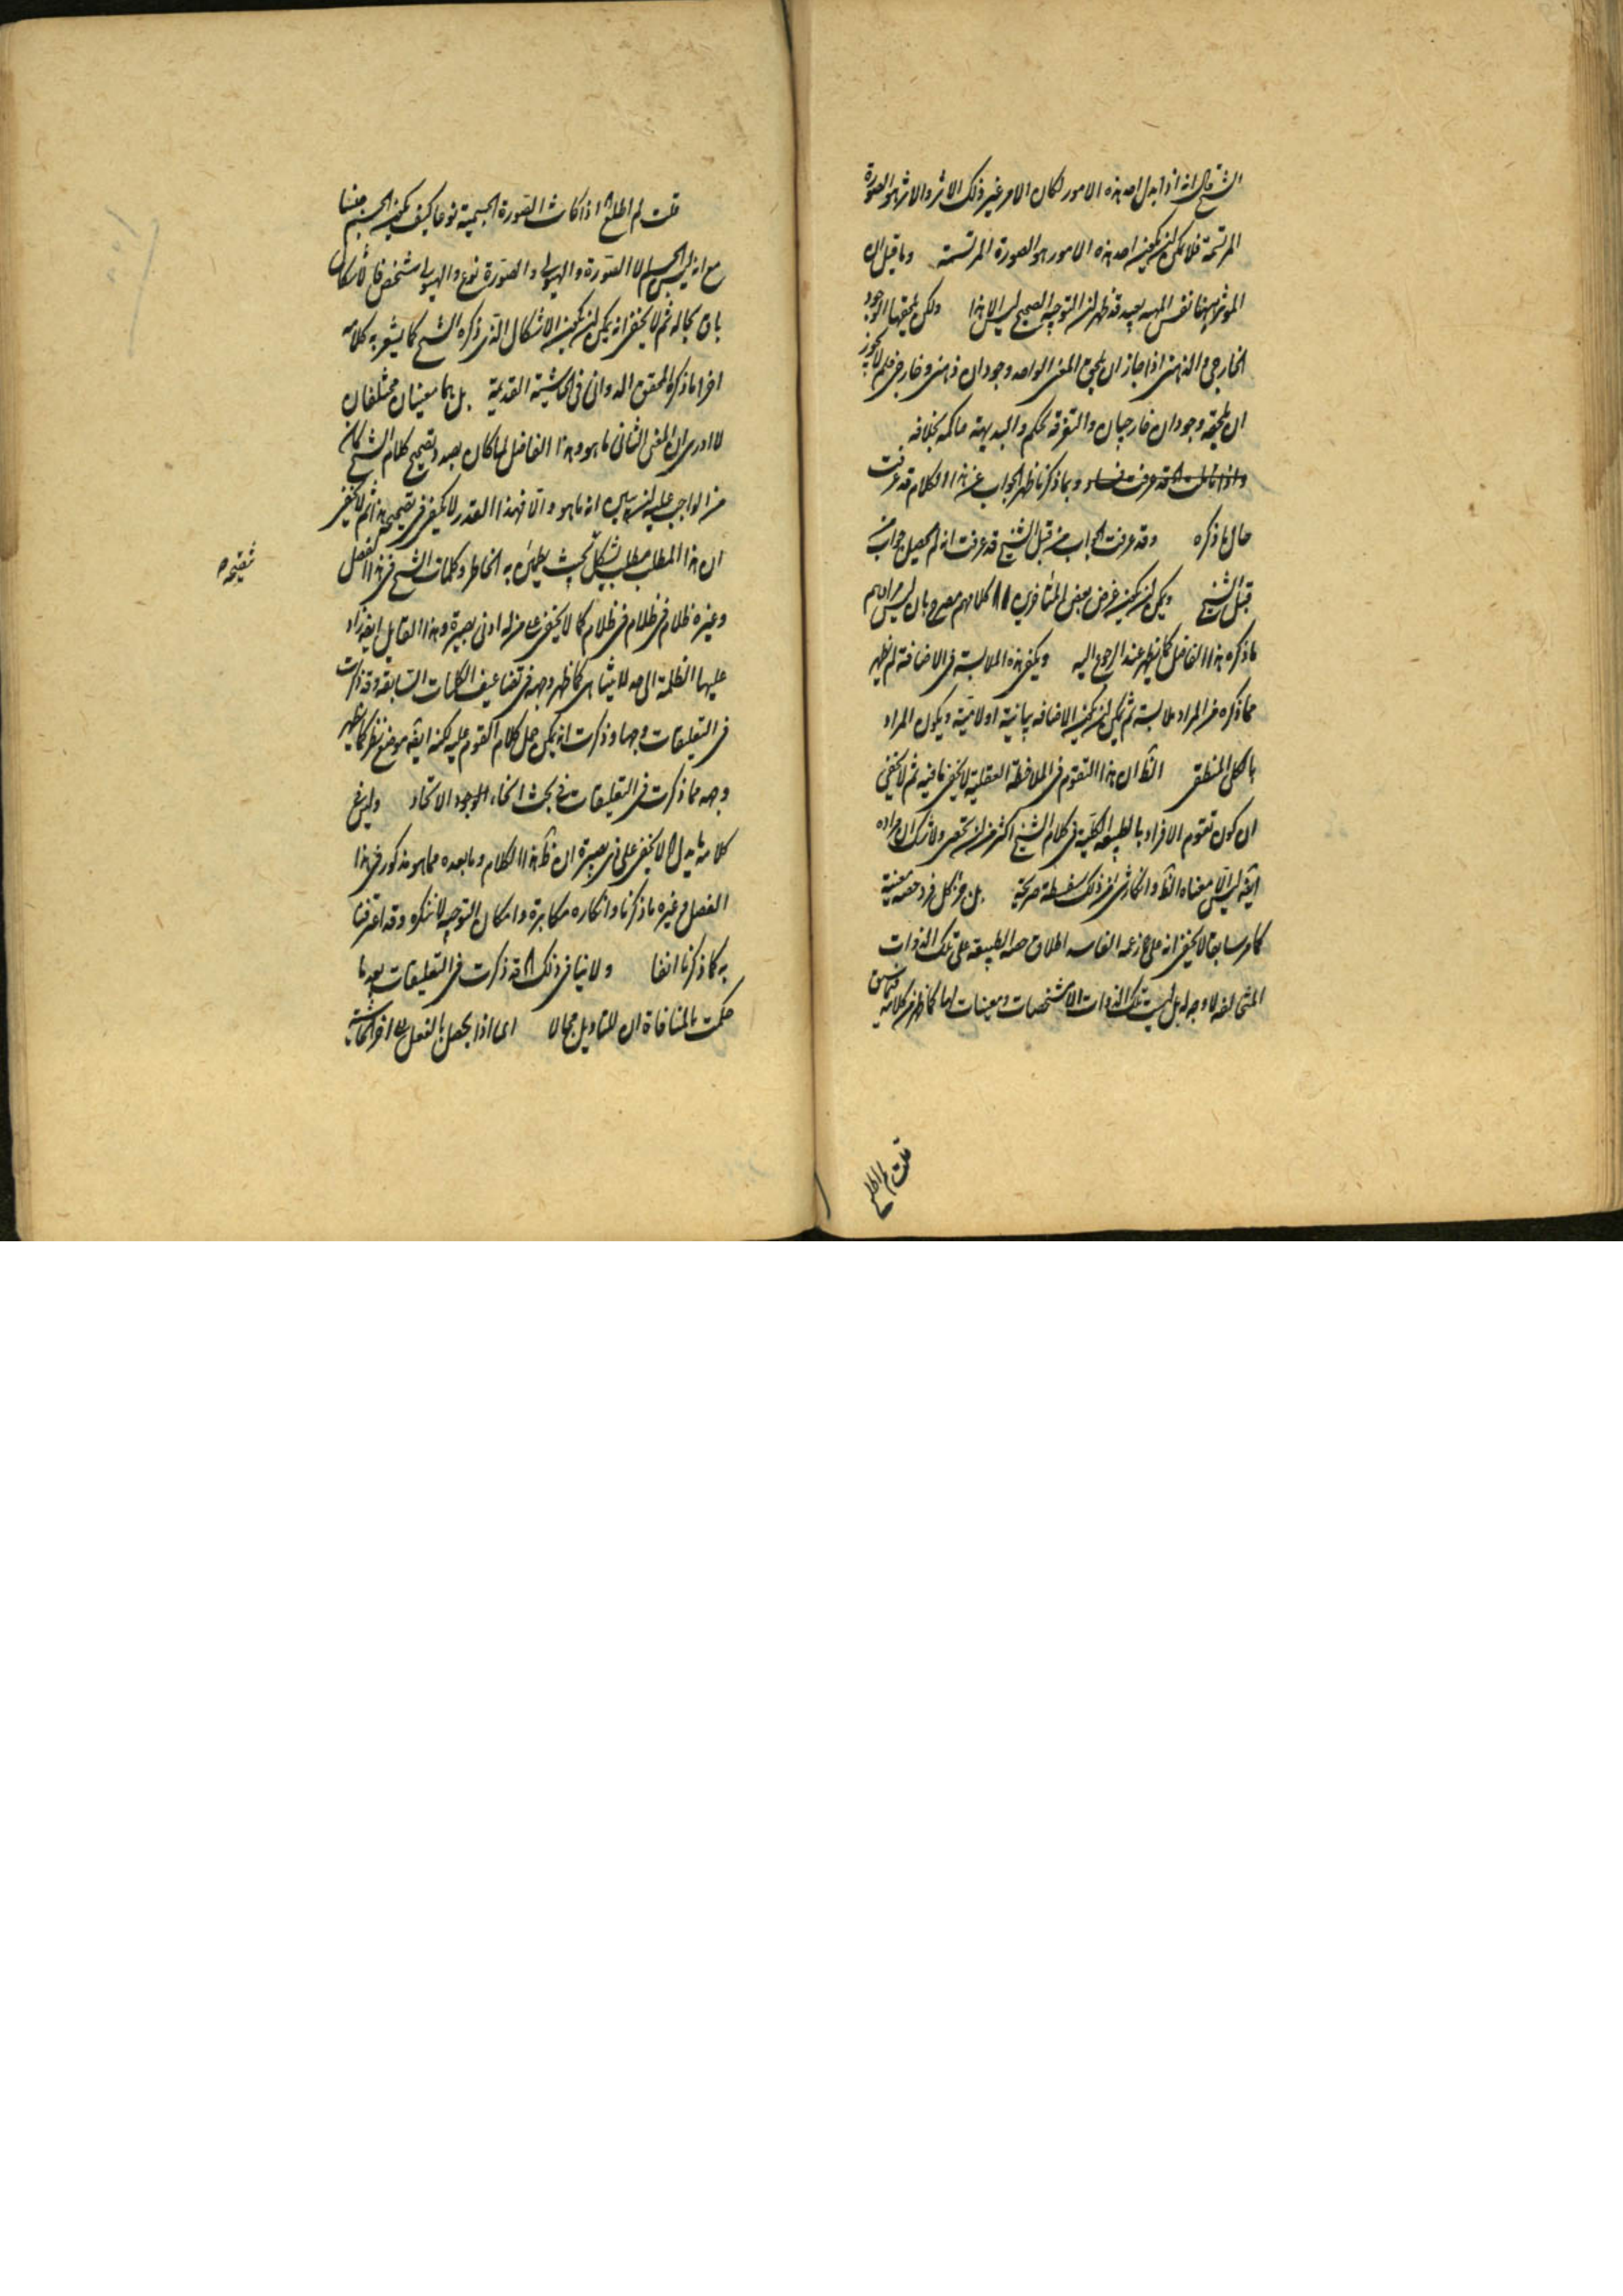 الشيخ قال انه اذا بدل احد هذه الامور لكان الامر غير ذلك الاثر والاثر هو الصورة
المرتسمة فلا يمكن ان يكون احد هذه الامور هو الصورة المرتسمة وما قيل ان
الموثر ههنا نفس المهية بعيد قد ظهر ان التوجيه الصحيح ليس الا هذا ولكن يلحقها الوجود
الخارجي والذهني اذا جاز ان يلحق المعنى الواحد وجودان ذهني وخارجي فلم لا يجوز
ان يلحقه وجودان خارجيان والتفرقة تحكم والبديهة حاكمة بخلافه
واذا تاملت قد عرفت فساده وبما ذكرنا ظهر الجواب عن هذا الكلام قد عرفت
حال ما ذكره وقد عرفت الجواب من قبل الشيخ قد عرفت انه لم يحصل جواب من
قبل الشيخ ويمكن ان يكون غرض بعض المتأخرين كلامهم مصرح بان ليس مرادهم
ما ذكره هذا الفاضل كما يظهر عند الرجوع اليه ويكفي هذه الملابسة في الاضافة لم يظهر
مما ذكره من المراد ملابسة ثم يمكن ان يكون الاضافه بيانية او لامية ويكون المراد
بالكلي المنطقي الظ ان هذا التقوم في الملاحظة العقلية لا يخفى ما فيه ثم لا يخفى
ان كون تقوم الافراد بالطبيعة الكلية في كلام الشيخ اكثر من ان يحصى ولا شك ان مراده
ايضا ليس الا معناه الظ وانكار شئ من ذلك سفسطة صريحة بل من كل فرد حصه معينة
كما مر سابقا لا يخفى انه على ما زعمه الفاسد اطلاق حصه الطبيعه على تلك الذوات
المتخالفة لا وجه له بل ليست تلك الذوات الا مشخصات ومعينات لها كما ظهر من كلامه فيما سبق
قلت لم اطلع
قلت لم اطلع اذا كانت الصورة الجسمية نوعا كيف يكون الجسم جنسا
مع انه ليس الجسم الا الصورة والهيولى والصورة نوع والهيولى شخص فالاشكال
باق بحاله ثم لا يخفى انه يمكن ان يكون الاشكال الذي ذكره الشيخ كما يشعر به كلامه
اخرا ما ذكره المحقق الدواني في الحاشية القديمة بل بهما معنيان مختلفان
لا ادري ان المعنى الثاني ما هو وهذا الفاضل لما كان بصدد تصحيح كلام الشيخ كان
من الواجب عليه ان يبين انه ما هو والا فهذا القدر لا يكفي في تصحيحه ثم لا يخفى
ان هذا المطلب مطلب مشكل بحيث يطمئن به الخاطر وكلمات الشيخ في هذا الفصل
وغيره ظلام في ظلام كما لا يخفى على من له ادنى بصيرة وهذا القايل ايضا زاد
عليها الظلمة الى حد لا يتناهى كما ظهر وجهه في تضاعيف الكلمات السابقة وقد ذكرت
في التعليقات وجها وذكرت انه يمكن حمل كلام القوم عليه لكنه ايضا موضع نظر كما يظهر
وجهه مما ذكرت في التعليقات في بحث انحاء الوجود الاتحاد وليس في
كلامه ما يدل لا يخفى على ذي بصيرة ان ظ هذا الكلام وما بعده مما هو مذكور في هذا
الفصل وغيره ما ذكرنا وانكاره مكابرة وامكان التوجيه لا ننكره وقد اعترفنا
به كما ذكرنا انفا ولا ينافي ذلك قد ذكرت في التعليقات بعد ما
حكمت بالمنافاة ان للتاويل مجالا اى اذا يحصل بالفعل الى اخر الحاشية
تصحيحه